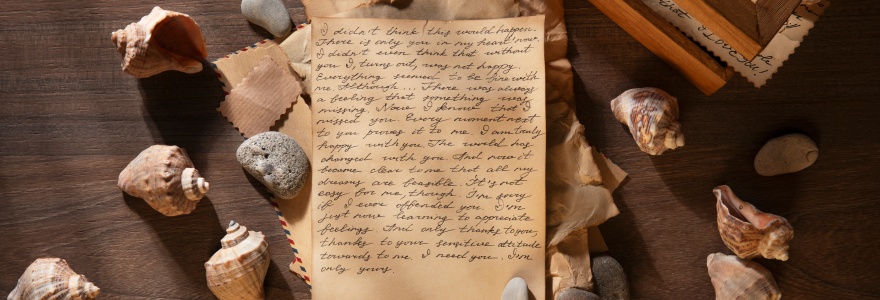 I didn't think this would happen.
There is only you in my heart now.
I didn't even think that without
you I, turns out, was not happy.
Everything seemed to be fine with
me. Although... There was always
a feeling that something was
missing. Now I know that I
missed you. Every moment next
to you proves it to me. I am truly
happy with you. The world has
changed with you. And now it
became clear to me that all my
dreams are feasible. It's not
easy for me, though. I'm sorry
if I ever offended you. I'm
just now learning to appreciate
feelings. And only thanks to you,
thanks to your sensitive attitude
towards to me. I need you. I'm
only yours.
that I love
you!